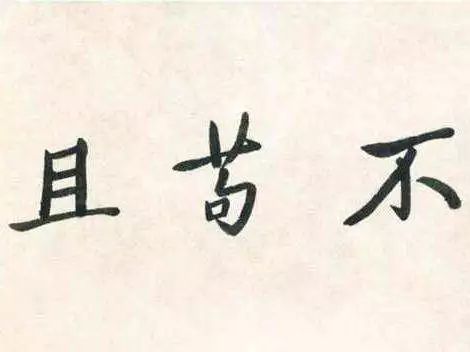 不苟且